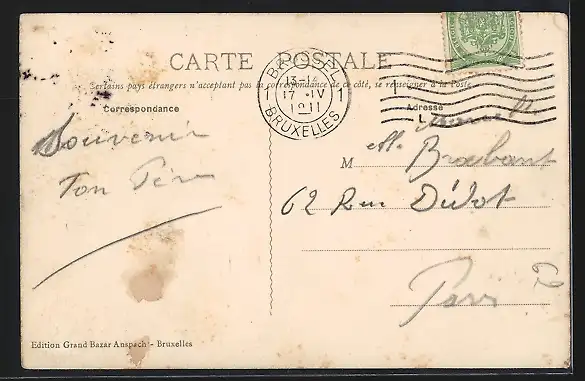 CARTE POSTALE
Certains pays étrangers n'acceptant pas la correspondance de ce côté, se renseigner à la Poste.
BRUSSEL
13-14
17 · IV
1911
BRUXELLES
1
Correspondance
Adresse
Souvenir
Ton Père
M elle Brabant
62 Rue Didot
Paris
Edition Grand Bazar Anspach - Bruxelles